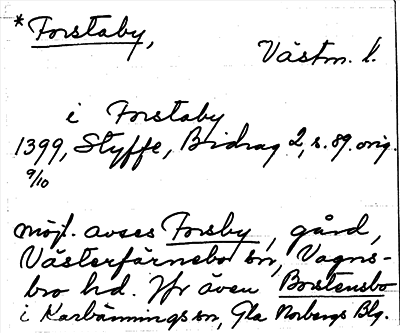 *Forstaby,
Västm. l.
i Forstaby
1399, Styffe, Bidrag 2, s. 89. orig.
9/10
möjl. avses Forsby, gård,
Västerfärnebo sn, Vagns-
bro hd. Jfr även Borstensbo
i Karbennings sn, Gla Norbergs Blg.